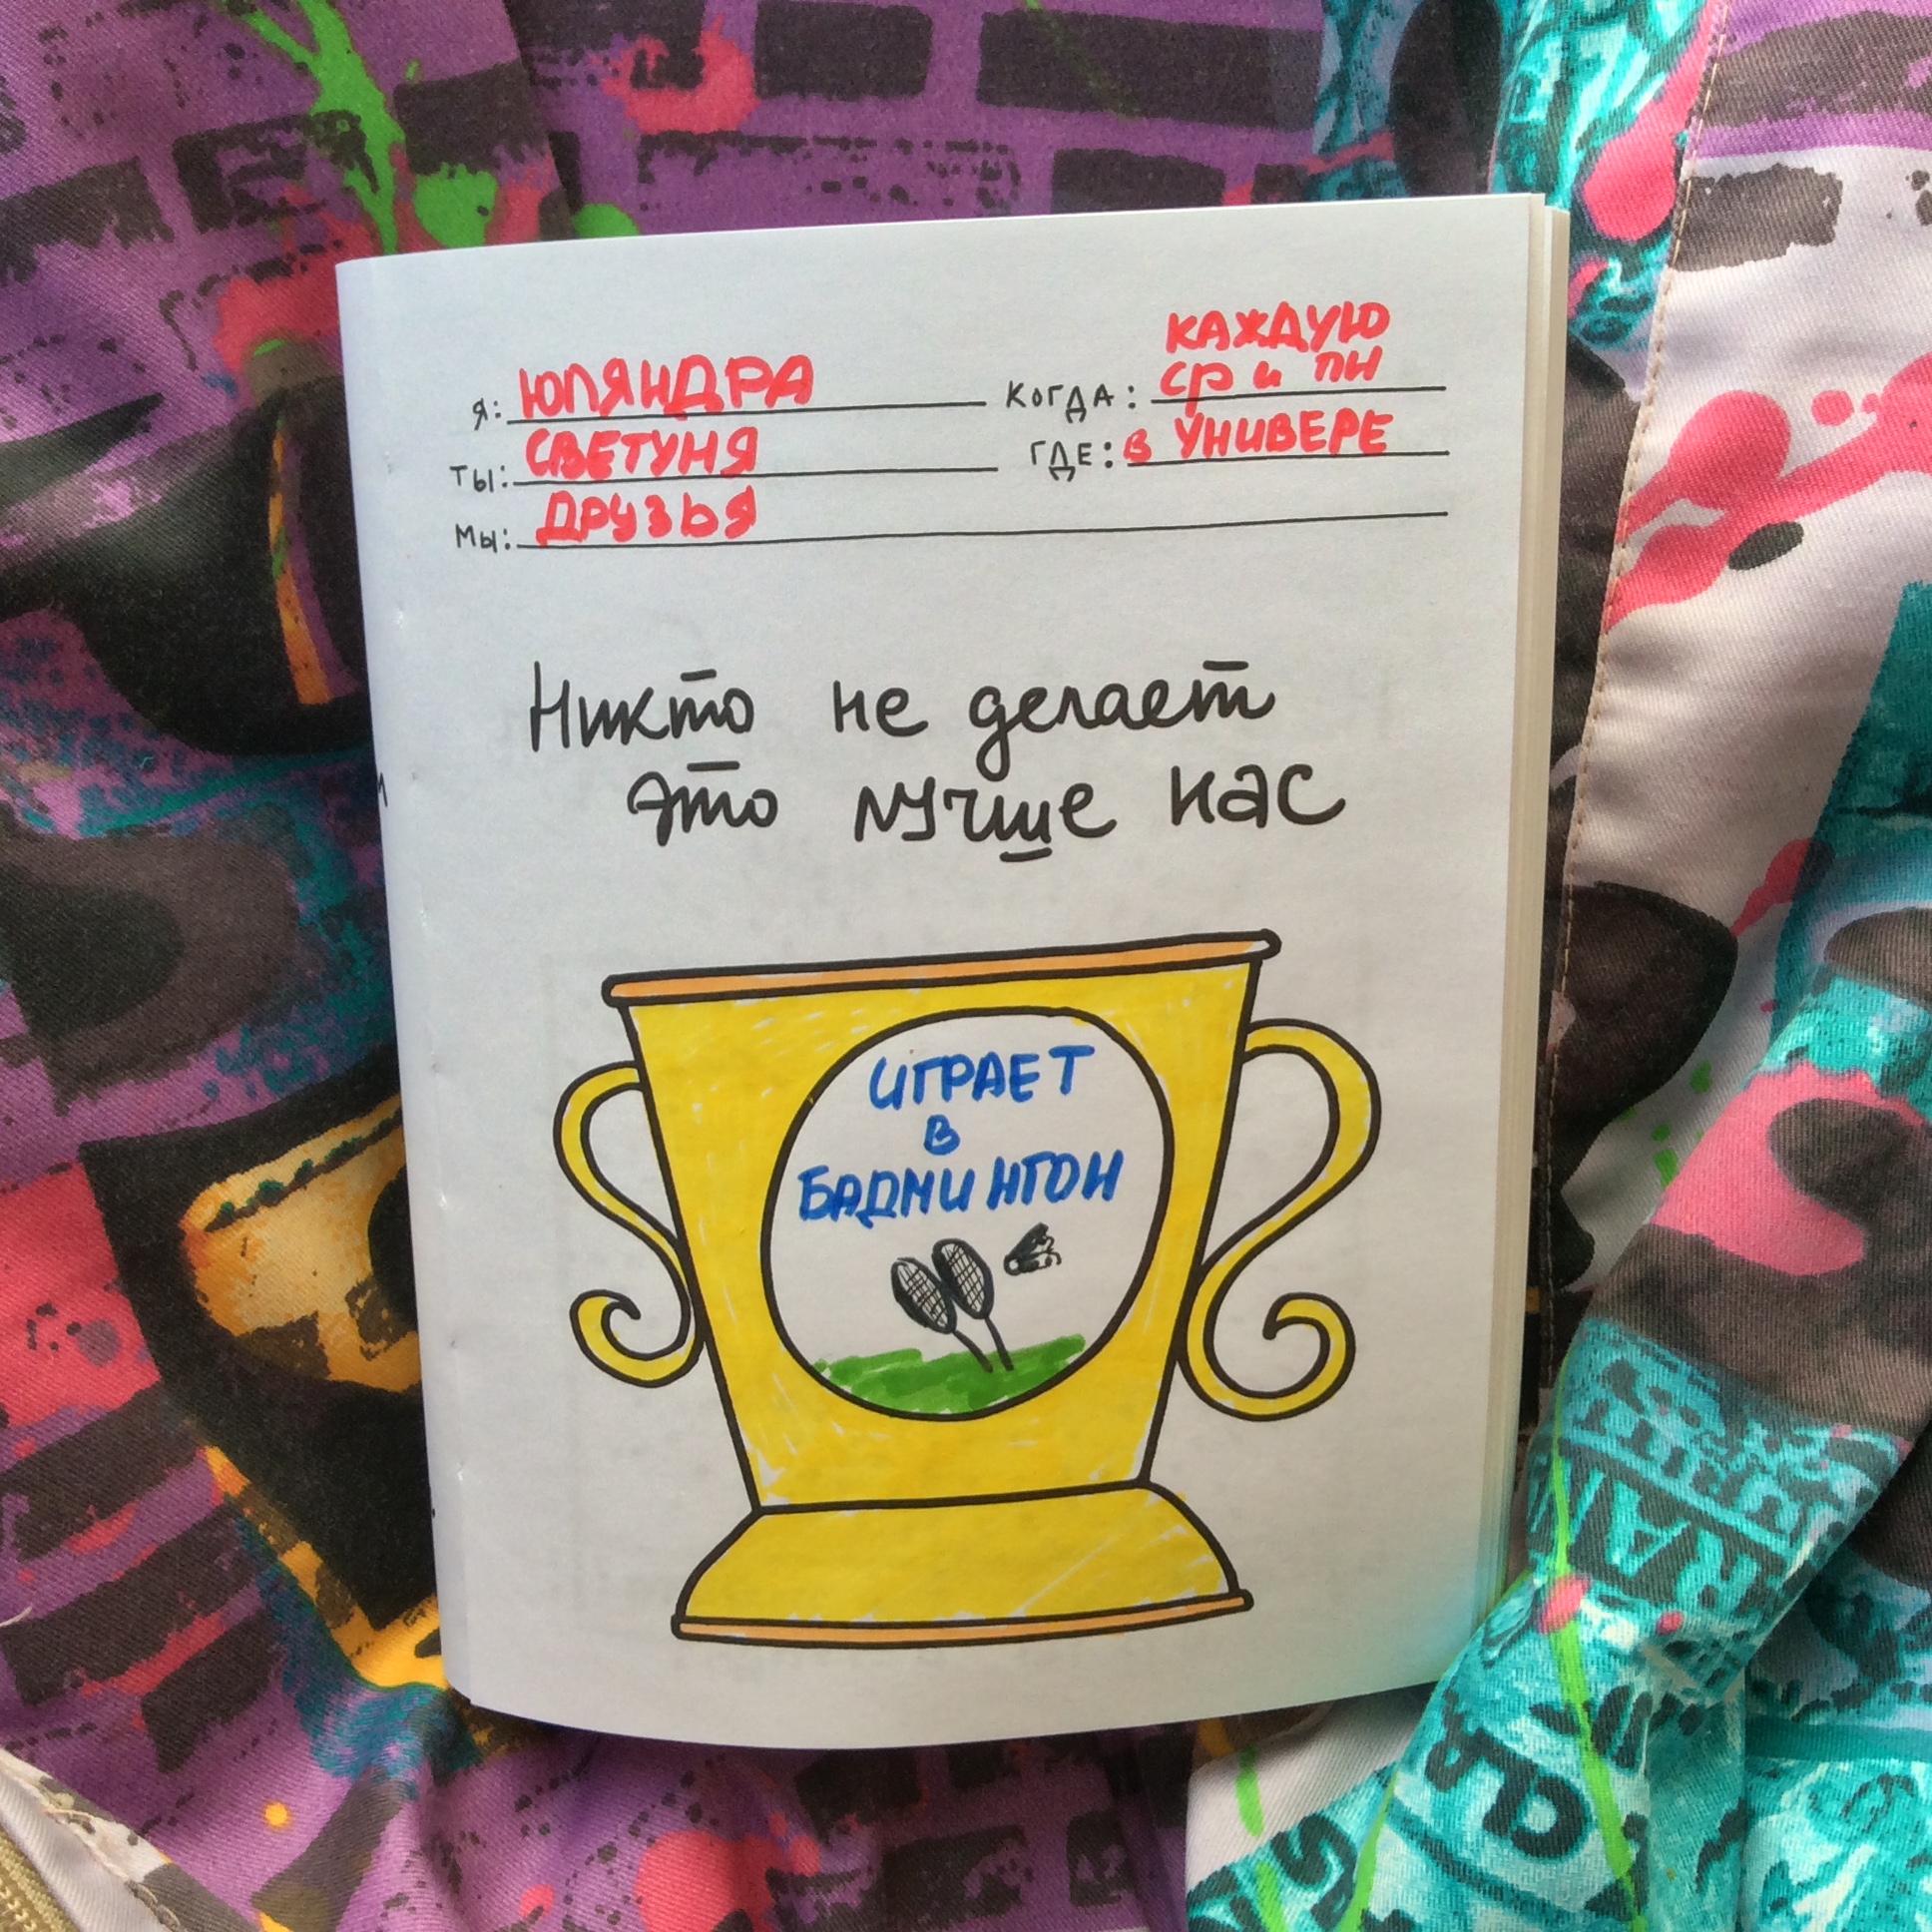 Я: ЮЛЯНДРА
КОГДА: КАЖДУЮ
СР и ПН
ТЫ: СВЕТУНЯ
ГДЕ: В УНИВЕРЕ
МЫ: ДРУЗЬЯ
Никто не делает
это лучше нас
ИГРАЕТ
В
БАДМИНТОН